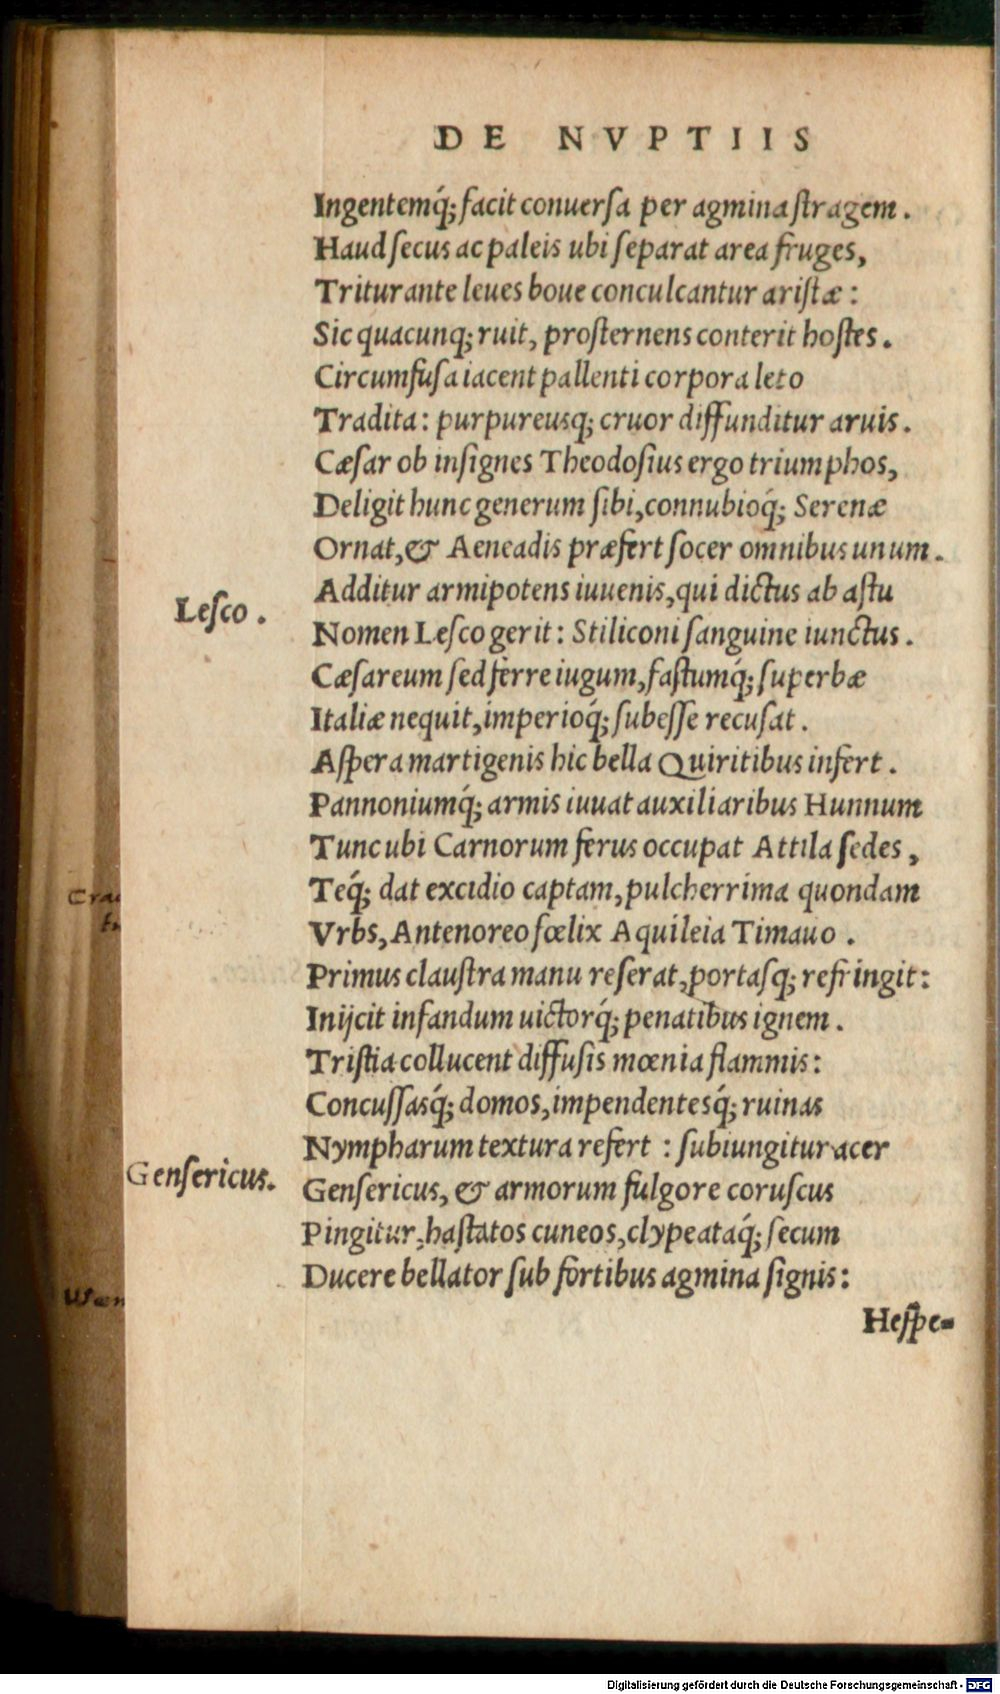 DE NVPTIIS
Ingentemq́; facit conuersa per agmina stragem.
Haud secus ac paleis ubi separat area fruges,
Triturante leues boue conculcantur aristæ:
Sic quacunq; ruit, prosternens conterit hostes.
Circumfusa iacent pallenti corpora leto
Tradita: purpureusq; cruor diffunditur aruis.
Cæsar ob insignes Theodosius ergo triumphos,
Deligit hunc generum sibi, connubioq́; Serenæ
Ornat, & Aeneadis præfert socer omnibus unum.
Additur armipotens iuuenis, qui dictus ab astu
Lesco.
Nomen Lesco gerit: Stiliconi sanguine iunctus.
Cæsareum sed ferre iugum, fastumq́; superbæ
Italiæ nequit, imperioq́; subesse recusat.
Aspera martigenis hic bella Quiritibus infert.
Pannoniumq́; armis iuuat auxiliaribus Hunnum
Tunc ubi Carnorum ferus occupat Attila sedes,
Teq́; dat excidio captam, pulcherrima quondam
Vrbs, Antenoreo fœlix Aquileia Timauo.
Primus claustra manu reserat, portasq; refringit:
Inijcit infandum uictorq́; penatibus ignem.
Tristia collucent diffusis mœnia flammis:
Concussasq́; domos, impendentesq́; ruinas
Nympharum textura refert: subiungitur acer
Gensericus.
Gensericus, & armorum fulgore coruscus
Pingitur, hastatos cuneos, clypeataq́; secum
Ducere bellator sub fortibus agmina signis:
Hespe-
Digitalisierung gefördert durch die Deutsche Forschungsgemeinschaft - DFG